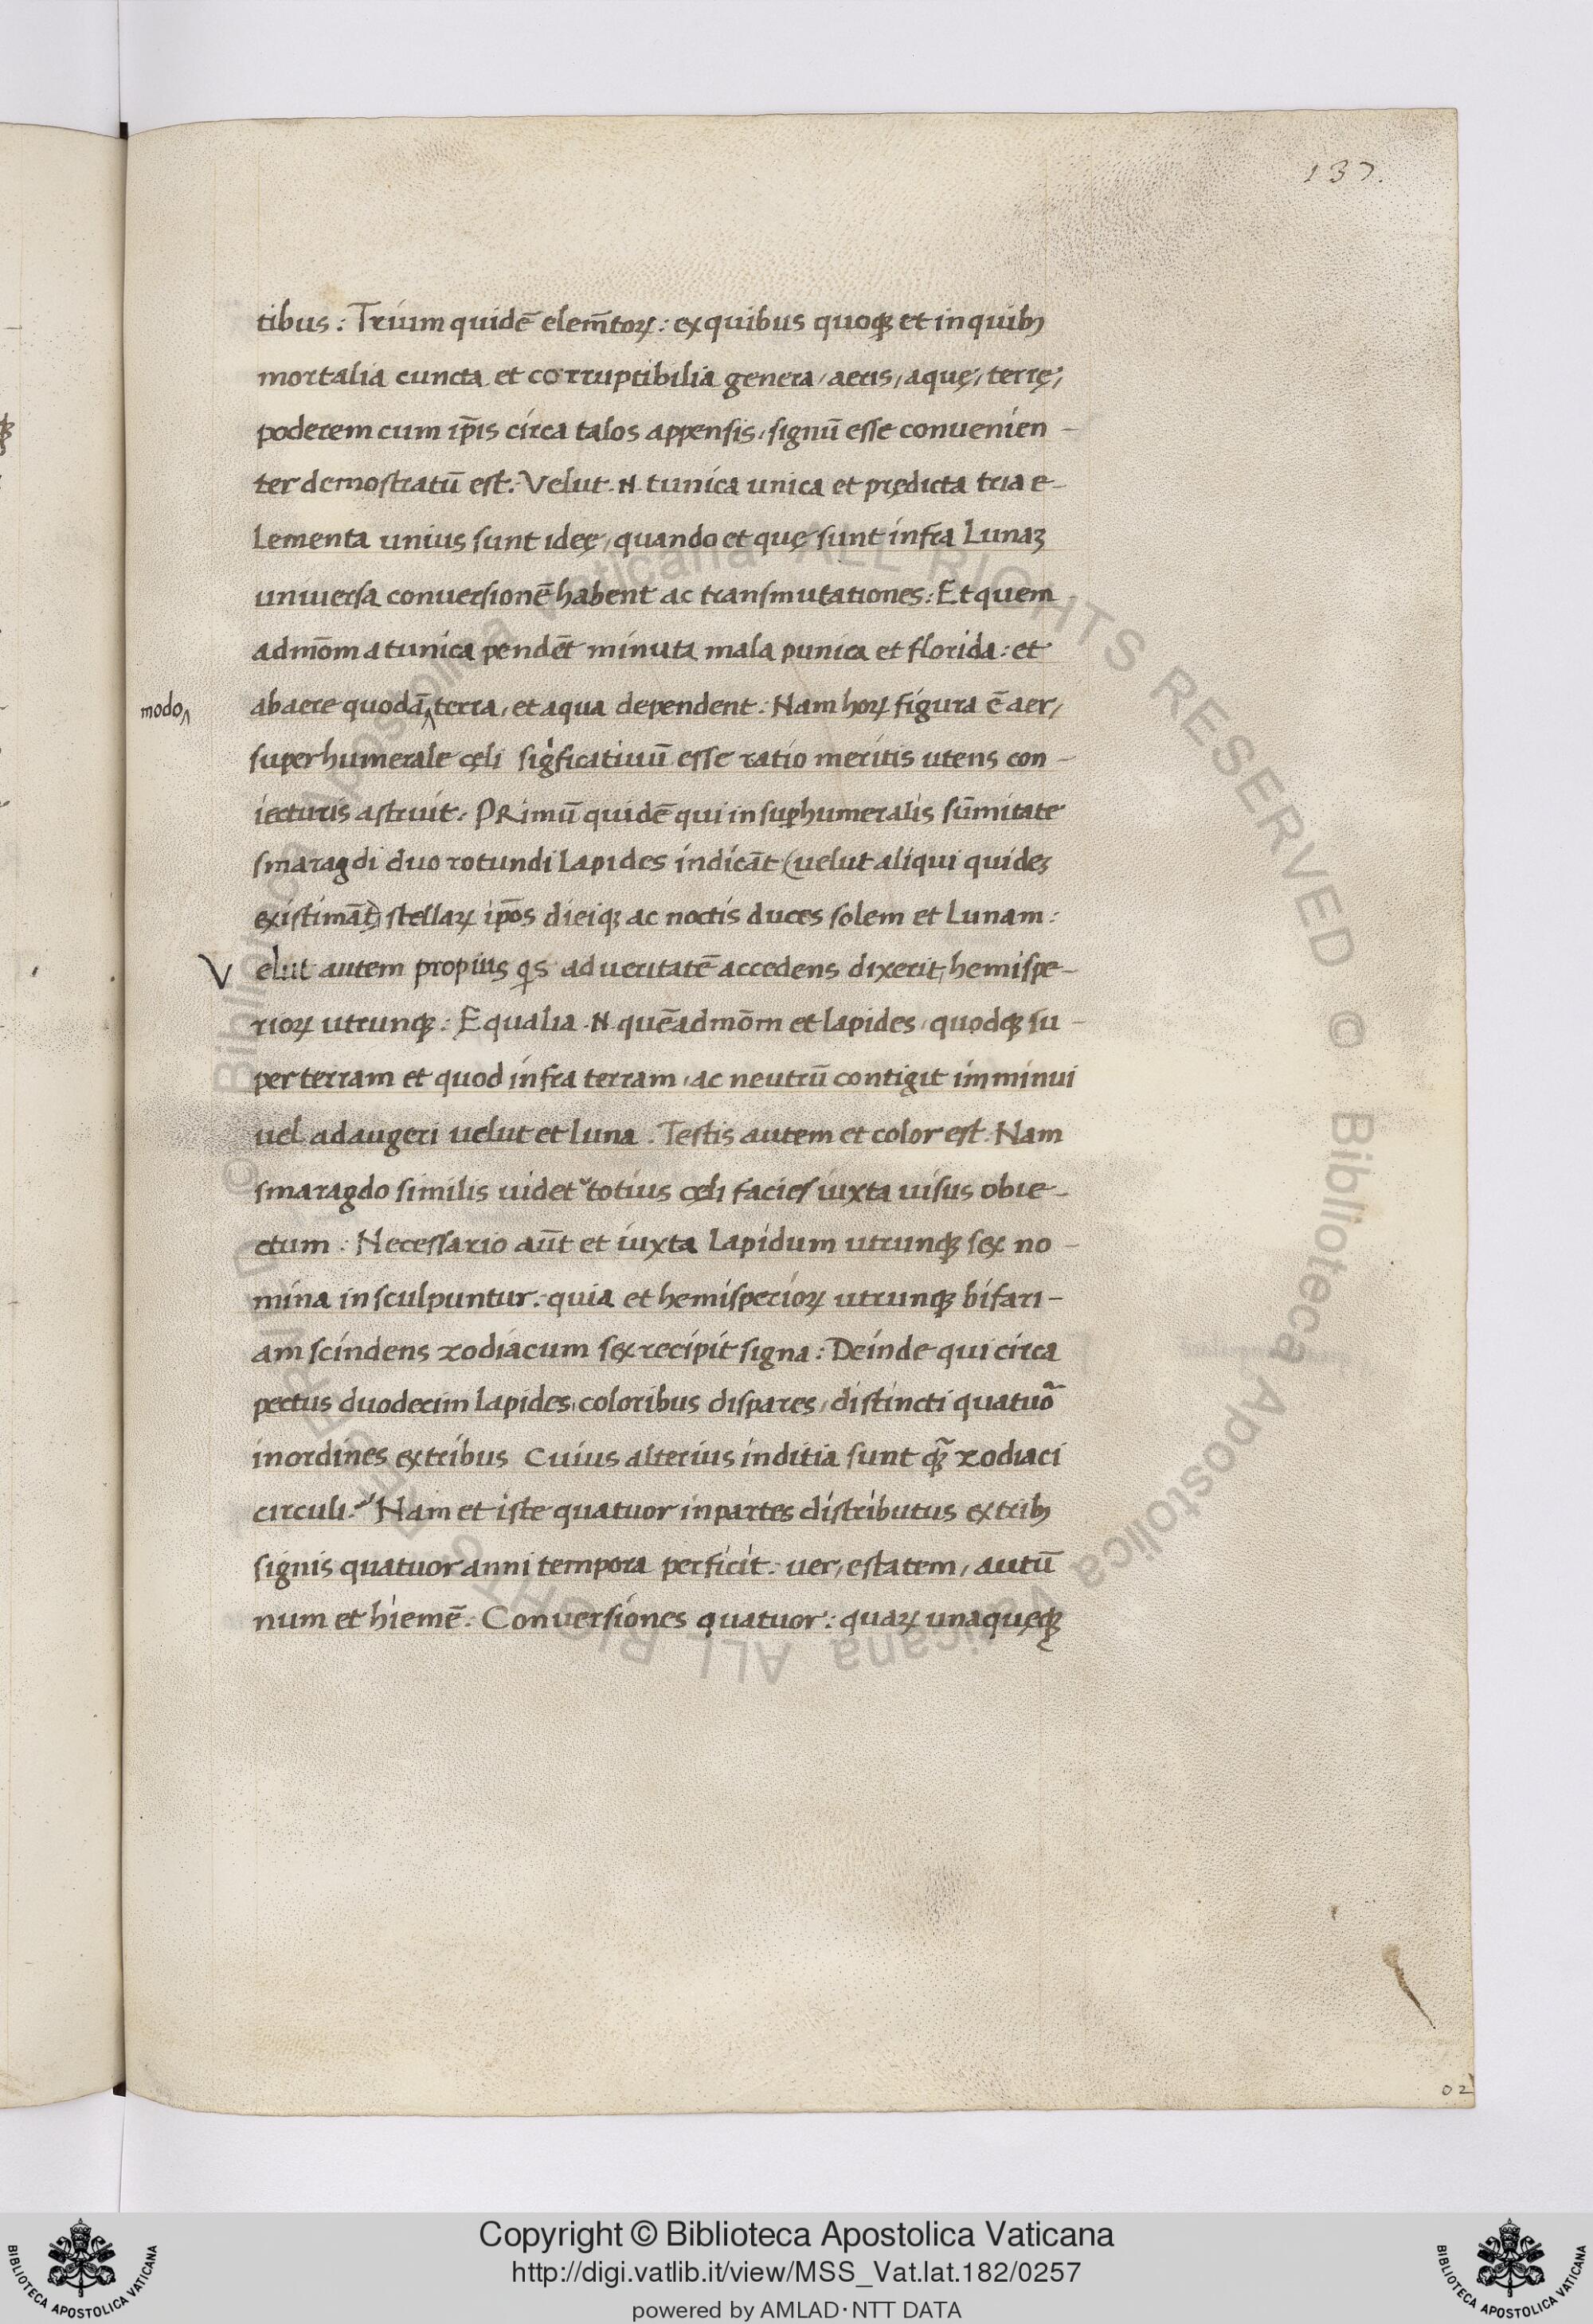 137.
tibus : Trium quidē elem̄toꝝ : ex quibus quoqꝫ et in quibꝰ
mortalia cuncta et corruptibilia genera, aeris, aquę, terrę;
poderem cum ip̄is circa talos appensis, signū esse conuenien-
ter demostratū est. Velut .N. tunica unica et prędicta tria e-
lementa unius sunt ideę, quando et quę sunt infra Lunaꝫ
uniuersa conuersionē habent ac transmutationes : Et quem
admōm a tunica pendēt minuta mala punica et florida : et
modo
ab aere quodā terra, et aqua dependent. Nam hoꝝ figura ē aer,
superhumerale cęli sigͥficatiuū esse ratio meritis utens con-
iecturis astruit. PRimū quidē qui in suꝑhumeralis sūmitate
smaragdi duo rotundi Lapides indicāt (uelut aliqui quideꝫ
existimāt) stellaꝝ ip̄os dieiqꝫ ac noctis duces solem et Lunam :
Velut autem propius qͥs ad ueritatē accedens dixerit, hemispe-
rioꝝ utrunqꝫ : Equalia .N. quēadmōm et lapides, quodqꝫ su-
per terram et quod infra terram, ac neutrū contigit imminui
uel adaugeri uelut et luna. Testis autem et color est. Nam
smaragdo similis uidet᷑ totius cęli facies iuxta uisus obie-
ctum : Necessario aūt et iuxta Lapidum utrunqꝫ sex no-
mina insculpuntur. quia et hemisperioꝝ utrunqꝫ bifari-
am scindens zodiacum sex recipit signa : Deinde qui circa
pectus duodecim lapides, coloribus dispares, distincti quatuo᷑
in ordines ex tribus Cuius alterius inditia sunt qꝫ᷑ zodiaci
circuli. Nam et iste quatuor in partes distributus ex tribꝰ
signis quatuor anni tempora perficit. uer, estatem, autū
num et hiemē. Conuersiones quatuor : quaꝝ unaquęqꝫ
02
© Biblioteca Apostolica Vaticana ALL RIGHTS RESERVED © Biblioteca Apostolica Vaticana ALL RIGHTS RESERVED
Copyright © Biblioteca Apostolica Vaticana
http://digi.vatlib.it/view/MSS_Vat.lat.182/0257
powered by AMLAD·NTT DATA
BIBLIOTECA APOSTOLICA VATICANA
BIBLIOTECA APOSTOLICA VATICANA